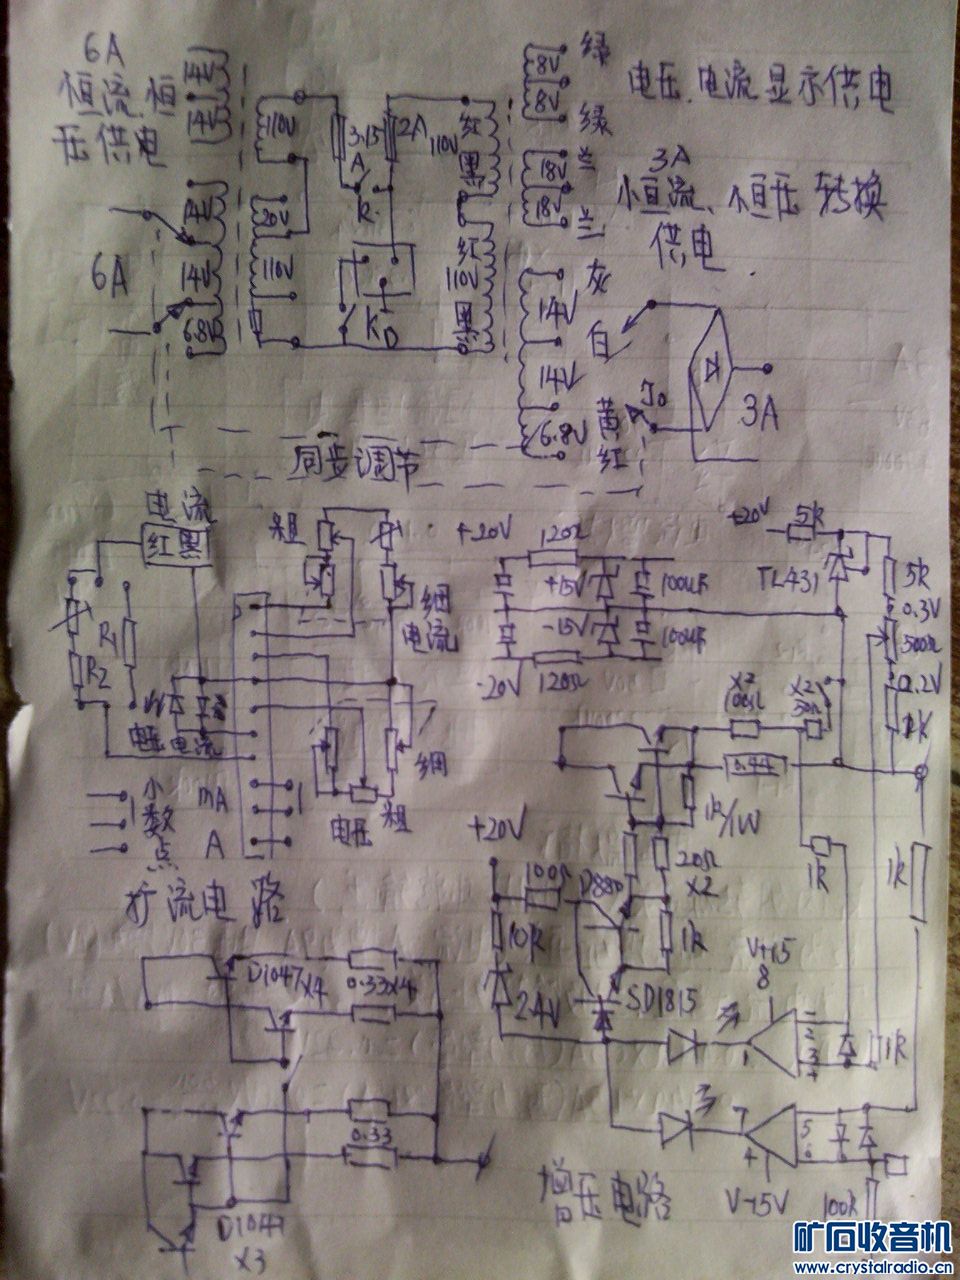 6A
恒流.恒
压供电
14V
14V
110V
3.15
A
2A
110V
红
黑
8V
8V
绿
绿
电压.电流显示供电
18V
18V
兰
兰
3A
恒流、恒压 转换
供电.
6A
14V
14V
6.8V
20V
110V
K
KD
红
110V
黑
灰
14V
白
14V
黄
6.8V
红
3A
同步调节
电流
红黑
粗
细
电流
R1
R2
电压
电流
细
粗
电压
小
数
点
mA
A
+20V
120Ω
+15V
100uF
-15V
100uF
-20V
120Ω
+20V
5K
TL431
5K
0.3V
500Ω
0.2V
1K
X2
100Ω
X2
0.44
1K/1W
+20V
100Ω
D880
20Ω
X2
10K
1K
24V
SD1815
V+15
8
1
2
3
4
1K
1K
1K
7
5
6
4
V-15V
100K
增压电路
扩流电路
D1047X4
0.33X4
0.33
D1047
X3
矿石收音机
www.crystalradio.cn